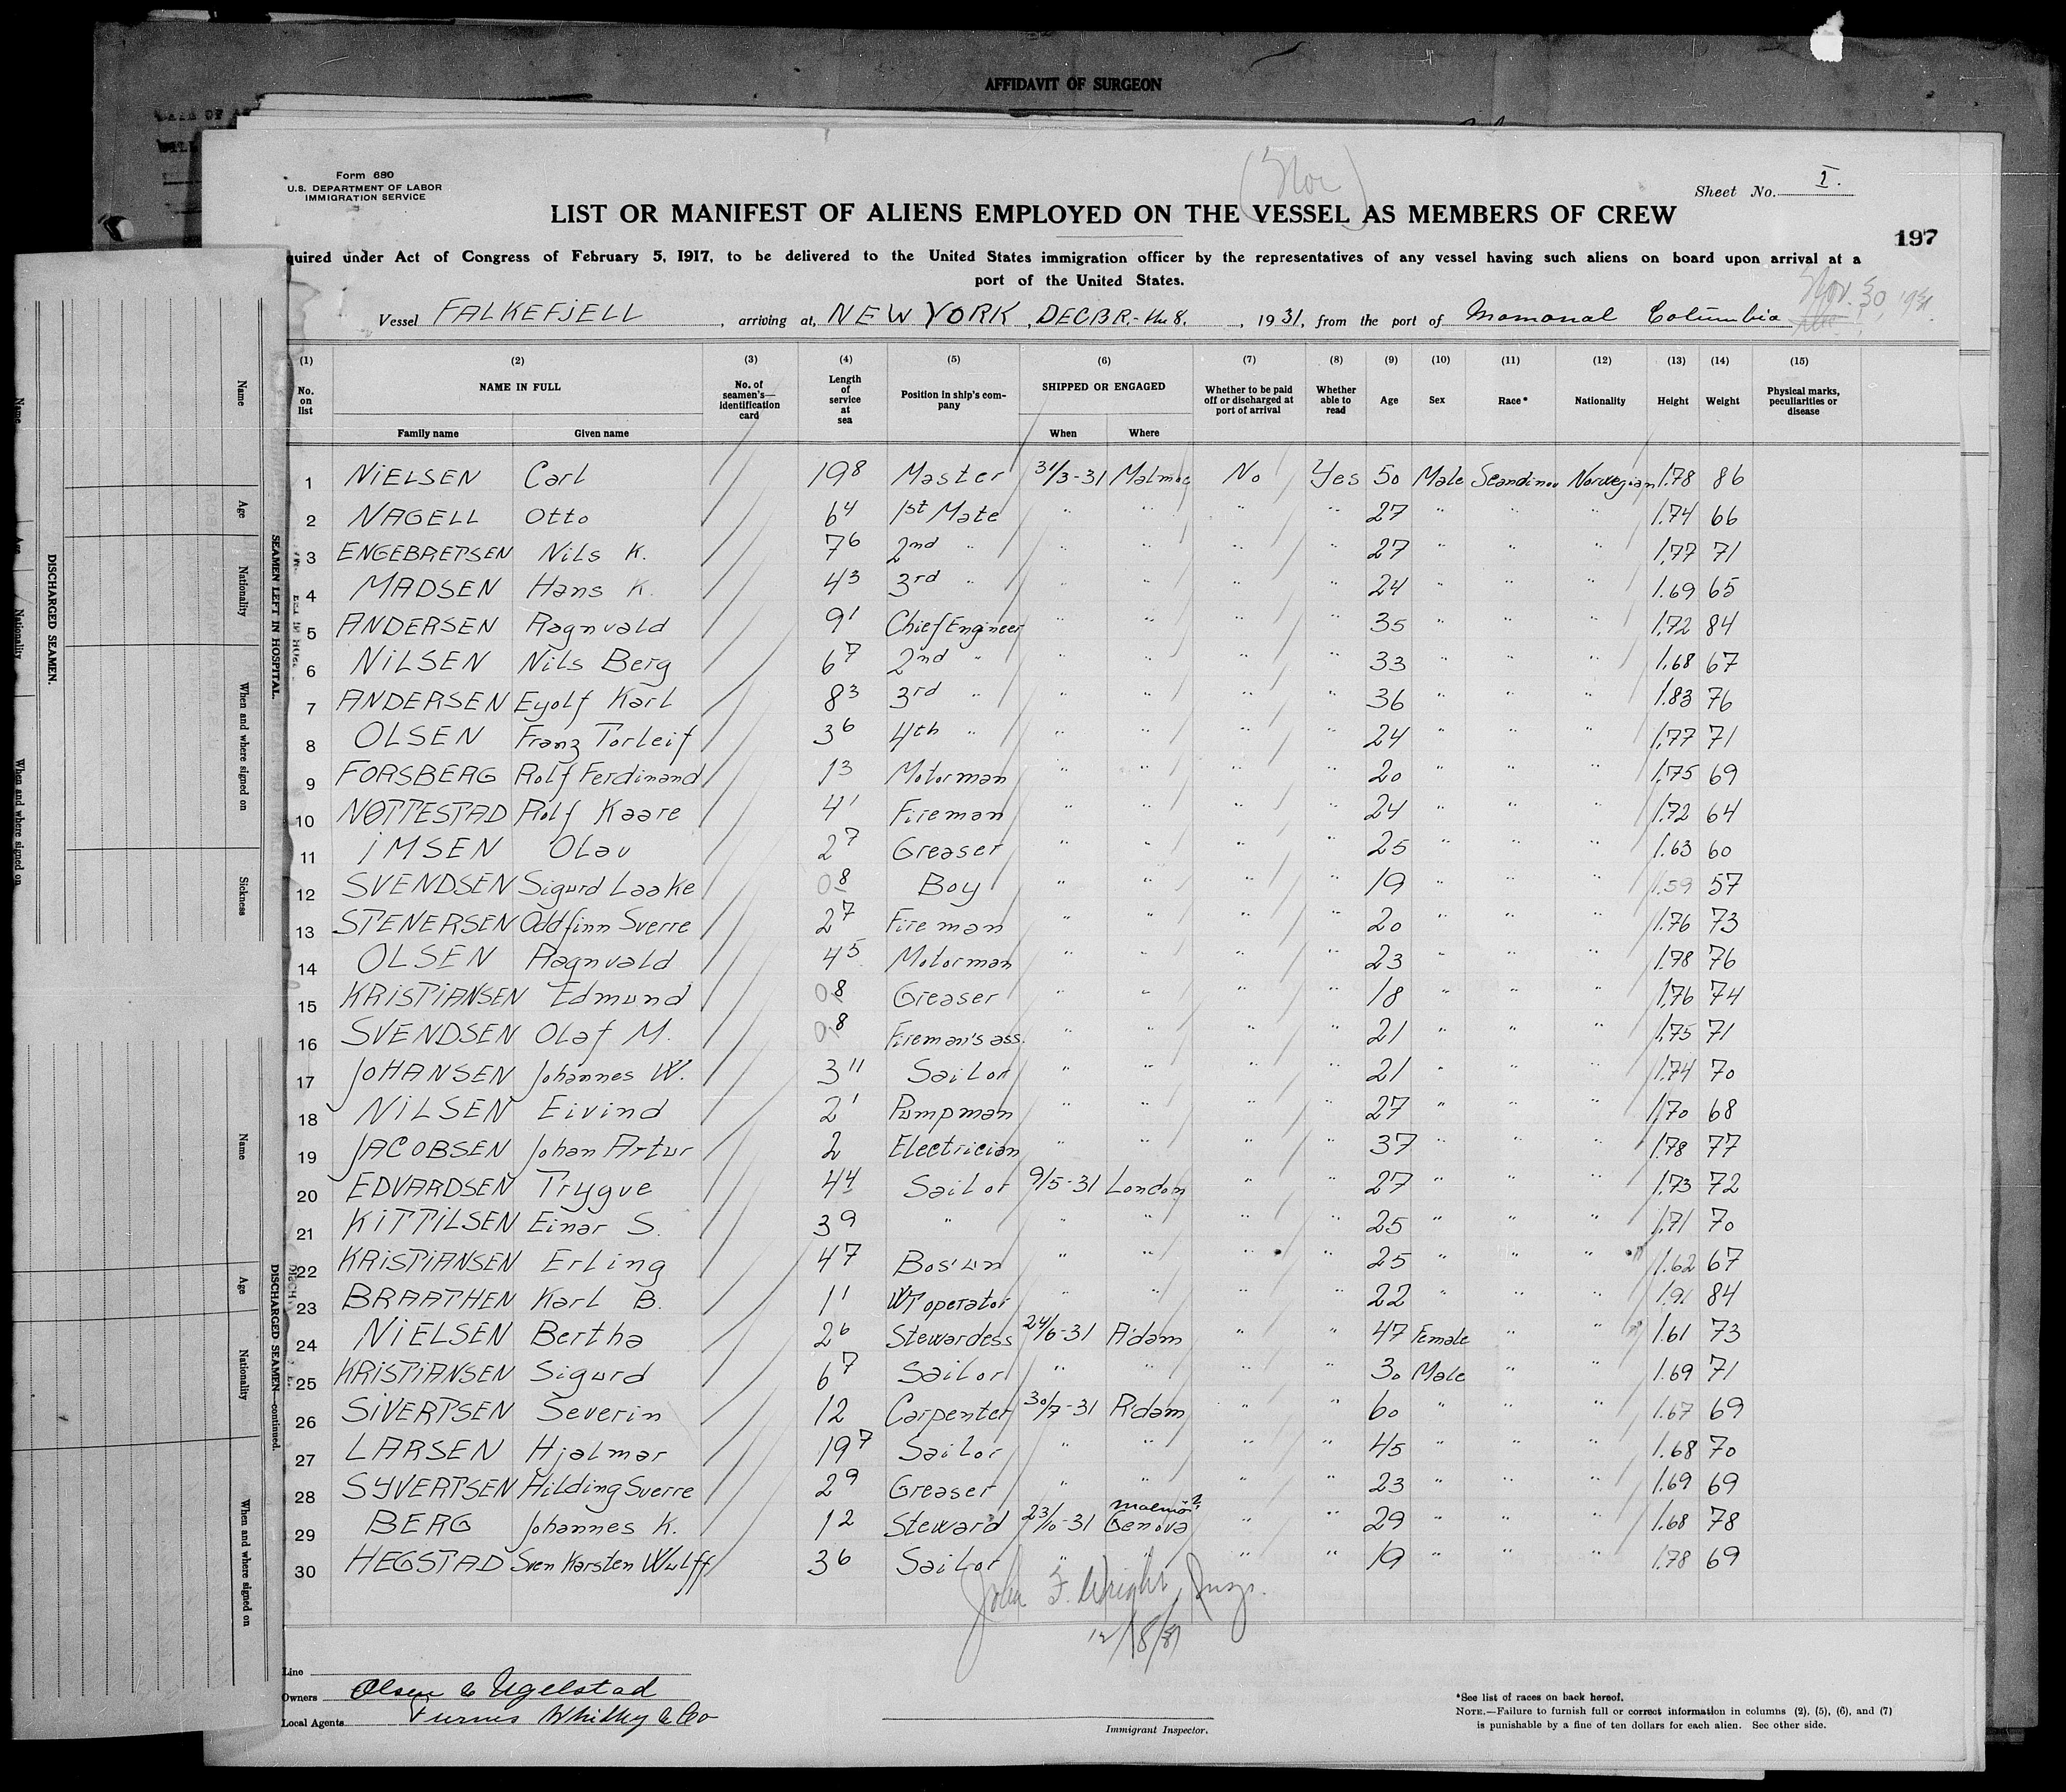 AFFIDAVIT OF SURGEON
Form 680
U.S. DEPARTMENT OF LABOR
IMMIGRATION SERVICE
(Nor)
Sheet No. I.
LIST OR MANIFEST OF ALIENS EMPLOYED ON THE VESSEL AS MEMBERS OF CREW
197
quired under Act of Congress of February 5, 1917, to be delivered to the United States immigration officer by the representatives of any vessel having such aliens on board upon arrival at a
port of the United States.
Vessel FALKEFJELL, arriving at, NEW YORK, DECBR.- the 8., 1931, from the port of Mamonal Columbia Nov. 30, 1931.
(1) (2) (3) (4) (5) (6) (7) (8) (9) (10) (11) (12) (13) (14) (15)
No. on list NAME IN FULL Family name Given name No. of seamen's—identification card Length of service at sea Position in ship's company SHIPPED OR ENGAGED When Where Whether to be paid off or discharged at port of arrival Whether able to read Age Sex Race* Nationality Height Weight Physical marks, peculiarities or disease
1 NIELSEN Carl 19 8 Master 31/3-31 Malmoe No Yes 50 Male Scandinav Norwegian 1.78 86
2 NAGELL Otto 6 4 1st Mate " " " " 27 " " " 1.74 66
3 ENGEBRETSEN Nils K. 7 6 2nd " " " " " 27 " " " 1.77 71
4 MADSEN Hans K. 4 3 3rd " " " " " 24 " " " 1.69 65
5 ANDERSEN Ragnvald 9 1 Chief Engineer " " " " 35 " " " 1.72 84
6 NILSEN Nils Berg 6 7 2nd " " " " " 33 " " " 1.68 67
7 ANDERSEN Eyolf Karl 8 3 3rd " " " " " 36 " " " 1.83 76
8 OLSEN Franz Torleif 3 6 4th " " " " " 24 " " " 1.77 71
9 FORSBERG Rolf Ferdinand 1 3 Motorman " " " " 20 " " " 1.75 69
10 NØTTESTAD Rolf Kaare 4 1 Fireman " " " " 24 " " " 1.72 64
11 IMSEN Olav 2 7 Greaser " " " " 25 " " " 1.63 60
12 SVENDSEN Sigurd Laake 0 8 Boy " " " " 19 " " " 1.59 57
13 STENERSEN Oddfinn Sverre 2 7 Fireman " " " " 20 " " " 1.76 73
14 OLSEN Ragnvald 4 5 Motorman " " " " 23 " " " 1.78 76
15 KRISTIANSEN Edmund 0 8 Greaser " " " " 18 " " " 1.76 74
16 SVENDSEN Olaf M. 0 8 Fireman's ass. " " " " 21 " " " 1.75 71
17 JOHANSEN Johannes W. 3 11 Sailor " " " " 21 " " " 1.74 70
18 NILSEN Eivind 2 1 Pumpman " " " " 27 " " " 1.70 68
19 JACOBSEN Johan Artur 2 Electrician " " " " 37 " " " 1.78 77
20 EDVARDSEN Trygve 4 4 Sailor 9/5-31 London " " 27 " " " 1.73 72
21 KITTILSEN Einar S. 3 9 " " " " " 25 " " " 1.71 70
22 KRISTIANSEN Erling 4 7 Bos'un " " " " 25 " " " 1.62 67
23 BRAATHEN Karl B. 1 1 WT operator " " " " 22 " " " 1.91 84
24 NIELSEN Bertha 2 6 Stewardess 24/6-31 A'dam " " 47 Female " " 1.61 73
25 KRISTIANSEN Sigurd 6 7 Sailor " " " " 30 Male " " 1.69 71
26 SIVERTSEN Severin 12 Carpenter 30/7-31 R'dam " " 60 " " " 1.67 69
27 LARSEN Hjalmar 19 7 Sailor " " " " 45 " " " 1.68 70
28 SYVERTSEN Hilding Sverre 2 9 Greaser " " " " 23 " " " 1.69 69
29 BERG Johannes K. 1 2 Steward 23/10-31 Malmö? Genova " " 29 " " " 1.68 78
30 HEGSTAD Sven Karsten Wulff 3 6 Sailor " " " " 19 " " " 1.78 69
John F. Wright, Insp.
12/8/31
Line
Owners Olsen & Ugelstad
Local Agents Furness Whithy & Co
Immigrant Inspector.
*See list of races on back hereof.
NOTE.—Failure to furnish full or correct information in columns (2), (5), (6), and (7)
is punishable by a fine of ten dollars for each alien. See other side.
Name
Age
Nationality
When and where signed on
Sickness
SEAMEN LEFT IN HOSPITAL.
DISCHARGED SEAMEN.
Name
Age
Nationality
When and where signed on
Name
Age
Nationality
When and where signed on
DISCHARGED SEAMEN—continued.